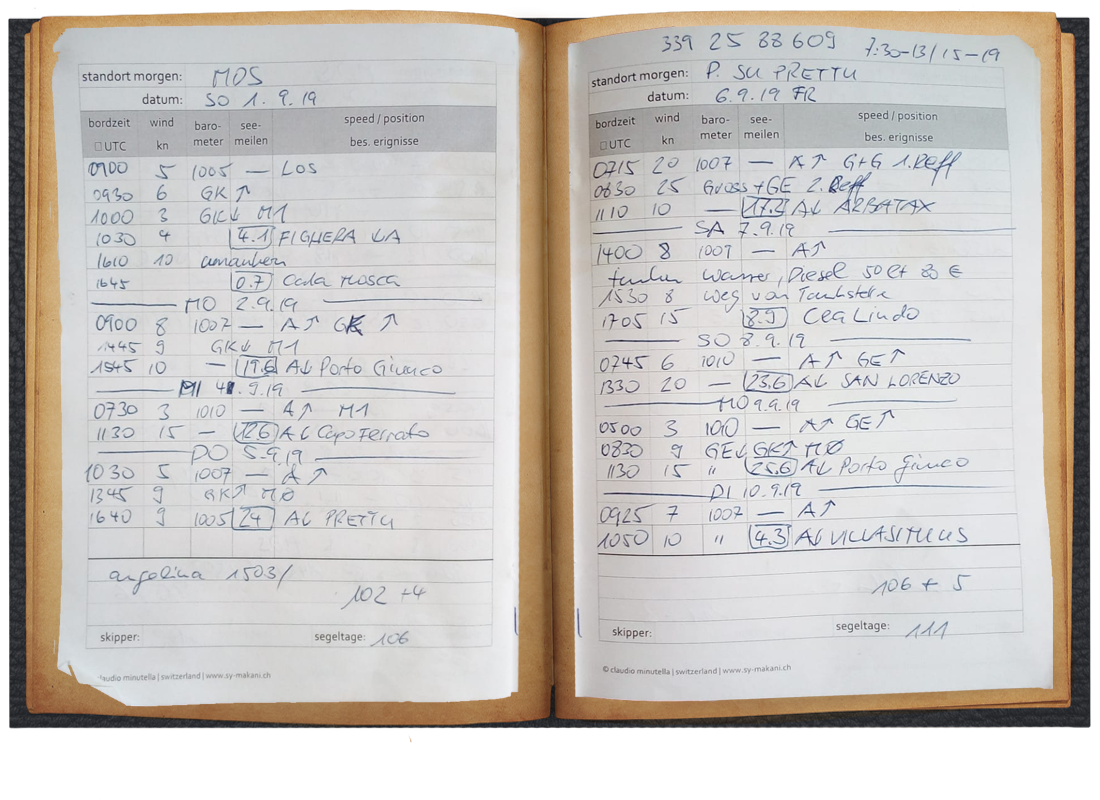 standort morgen: MOS
datum: SO 1.9.19
bordzeit wind baro- see- speed / position
□ UTC kn meter meilen bes. erignisse
0900 5 1005 — LOS
0930 6 GK ↑
1000 3 GK↓ M1
1030 4 4.1 FIGHERA
1610 10
1645 0.7 Cala Mosca
MO 2.9.19
0900 8 1007 — A↑ GK ↑
1445 9 GK↓ M1
1545 10 — 19.6 A↓ Porto Giunco
4.9.19
0730 3 1010 — A↑ M1
1130 15 — 12.6 A↓ Capo Ferrato
DO 5.9.19
1030 5 1007 — A↑
1345 9 GK↑ MØ
1640 9 1005 24 A↓ PRETTU
angelina 1503/
102 +4
skipper: segeltage: 106
claudio minutella | switzerland | www.sy-makani.ch
339 25 88 609 7:30-13/15-19
standort morgen: P. SU PRETTU
datum: 6.9.19 FR
bordzeit wind baro- see- speed / position
□ UTC kn meter meilen bes. erignisse
0715 20 1007 — A↑ G+G 1. Reff
0830 25 Gross+GE 2. Reff
1110 10 — 17.2 A↓ ARBATAX
SA 7.9.19
1400 8 1007 — A↑
tanken Wasser, Diesel 50 lt 80 €
1530 8 weg von Tankstelle
1705 15 8.9 Cea Lindo
SO 8.9.19
0745 6 1010 — A↑ GE↑
1330 20 — 23.6 A↓ SAN LORENZO
MO 9.9.19
0500 3 1010 — A↑ GE↑
0830 9 GE↓ GK↑ MØ
1130 15 " 25.6 A↓ Porto Giunco
DI 10.9.19
0925 7 1007 — A↑
1050 10 " 4.3 A↓ VILLASIMIUS
106 + 5
skipper: segeltage: 111
© claudio minutella | switzerland | www.sy-makani.ch